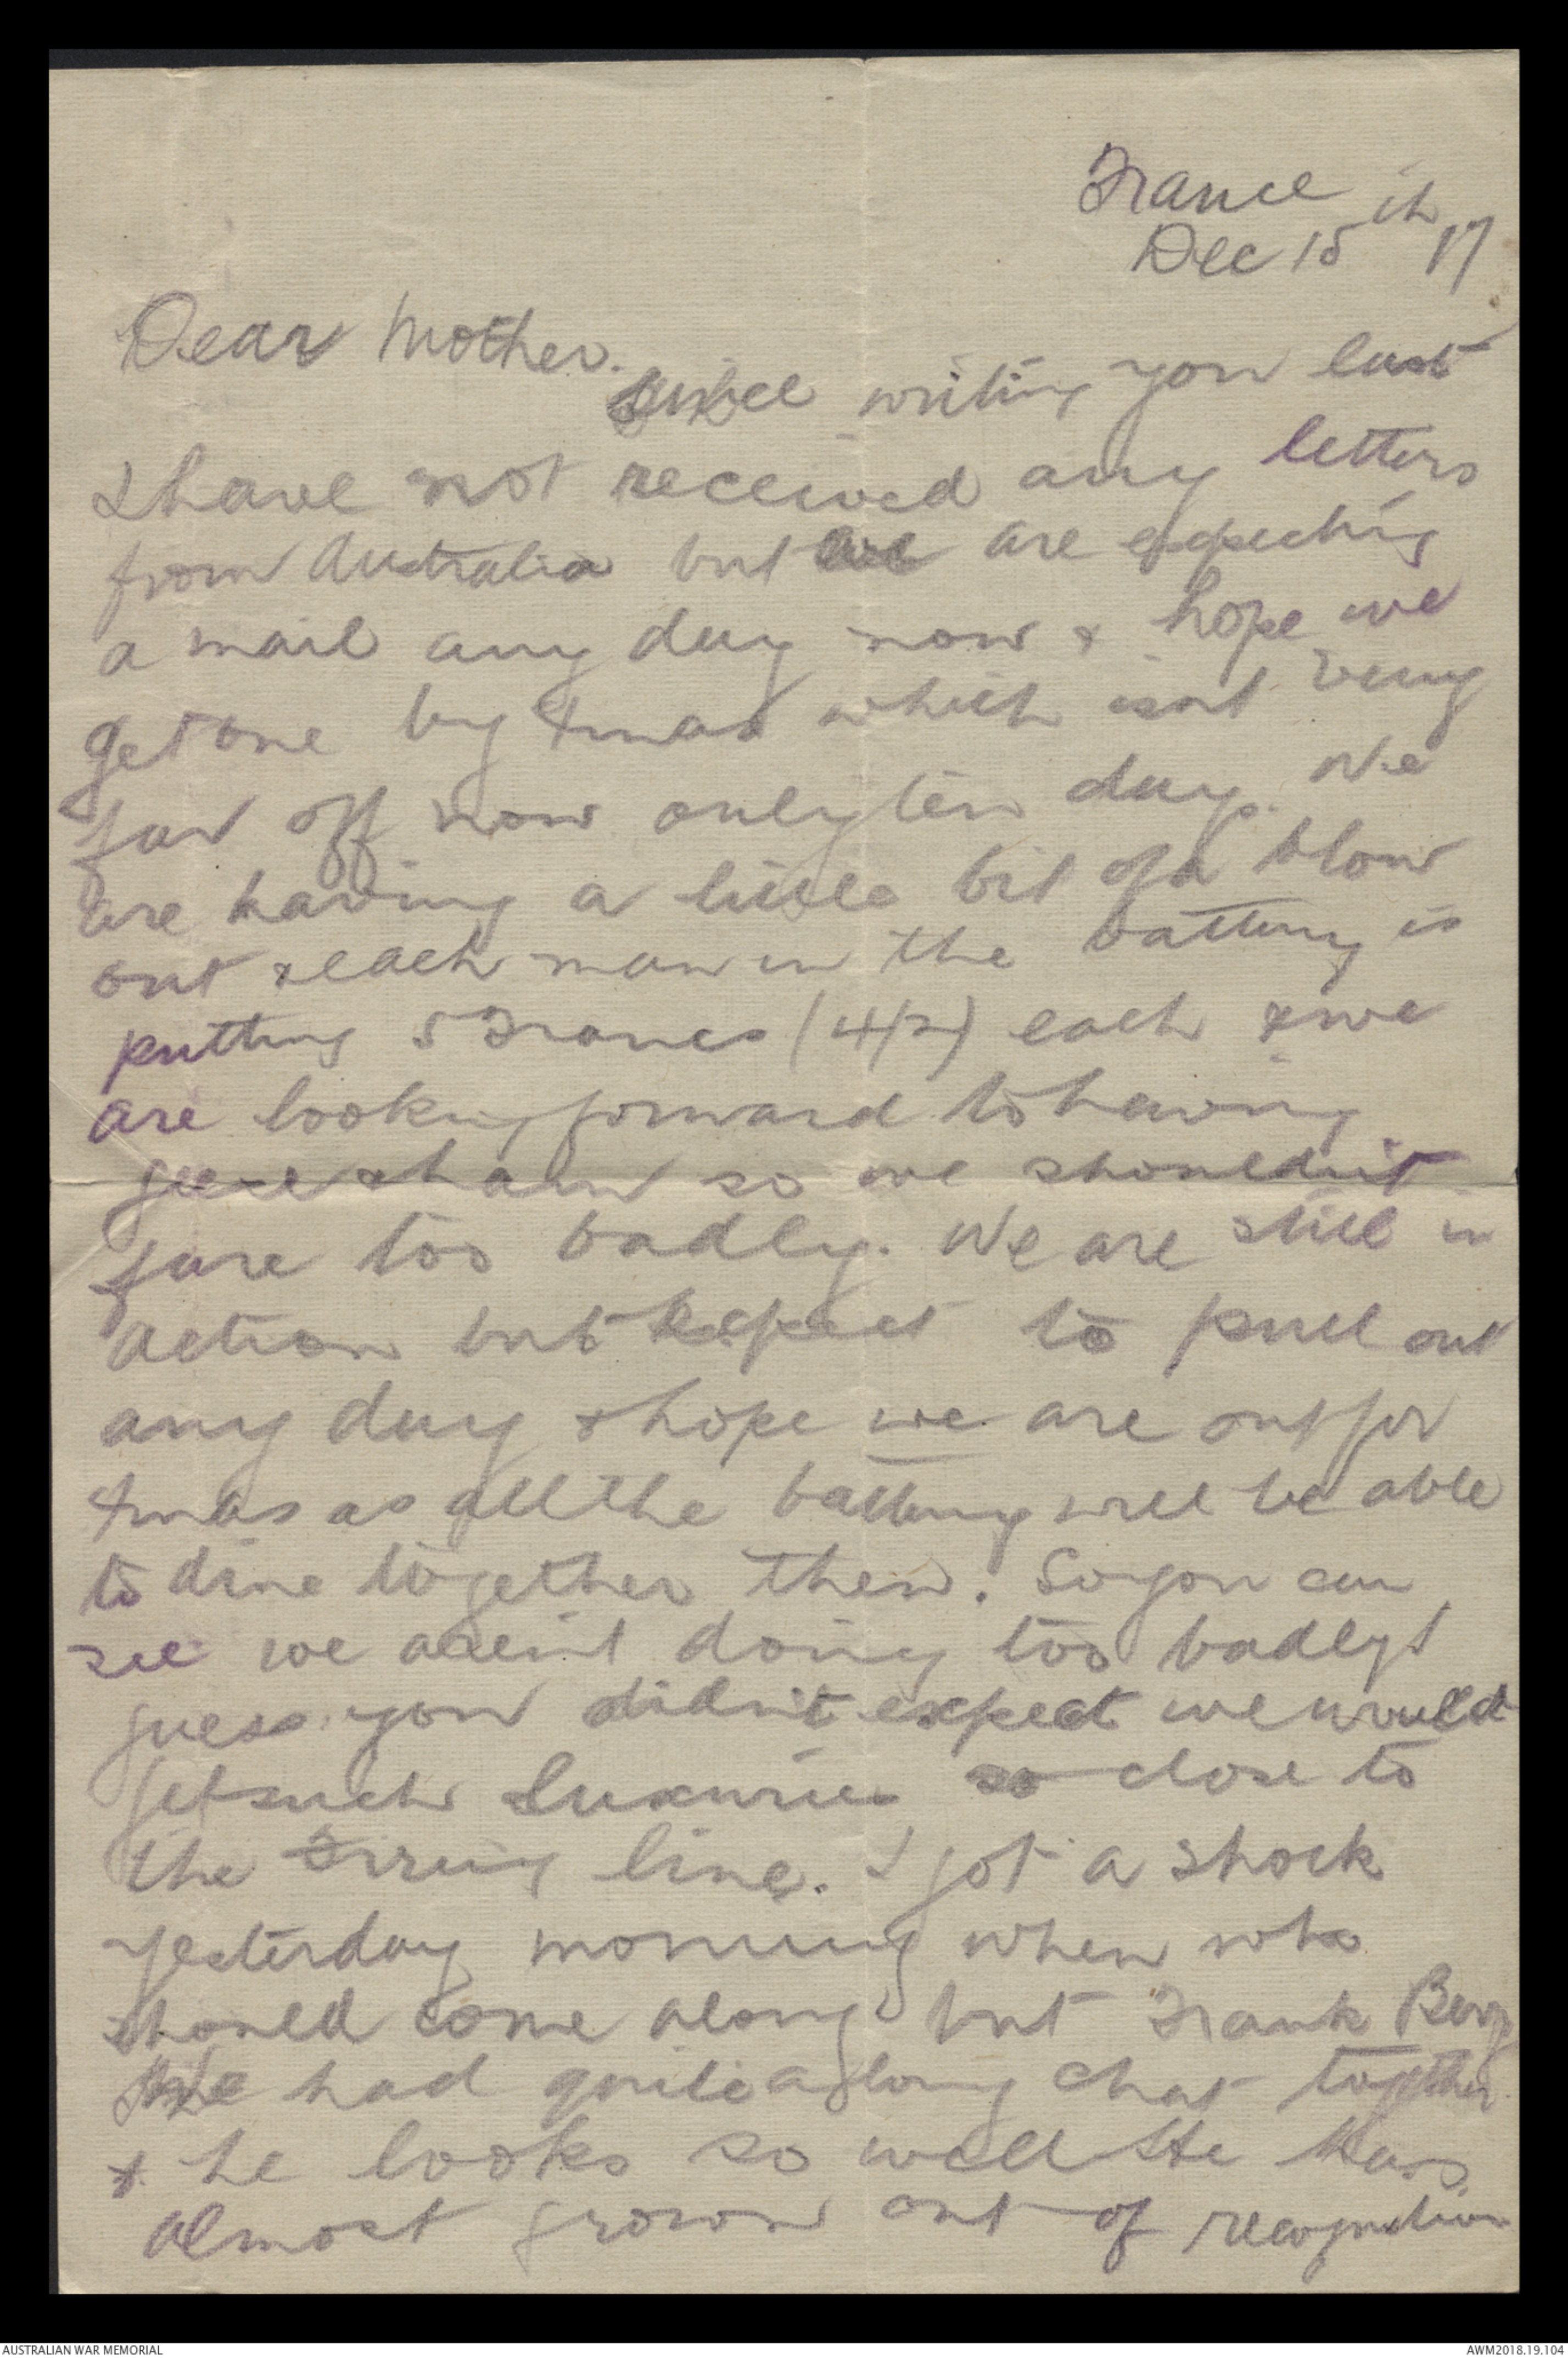 France
Dec 15th 17
Dear Mother.
Since writing you last
I have not received any letters
from Australia but we are expecting
a mail any day now & hope we
get one by Xmas which isnt very
far off now only ten days. We
are having a little bit of a blow
out & each man in the battery is
putting 5 Francs (4/2) each & we
are looking forward to having
geese & ham so we shouldn't
fare too badly. We are still in
action but expect to pull out
any day & hope we are out for
Xmas as all the battery will be able
to dine together then. So you can
see we aren't doing too badly I
guess you didn't expect we would
get such luxuries so close to
the Firing line. I got a shock
yesterday morning when who
should come along but Frank Berg
We had quite a long chat together
& he looks so well He has
almost grown out of recognition
AUSTRALIAN WAR MEMORIAL
AWM2018.19.104